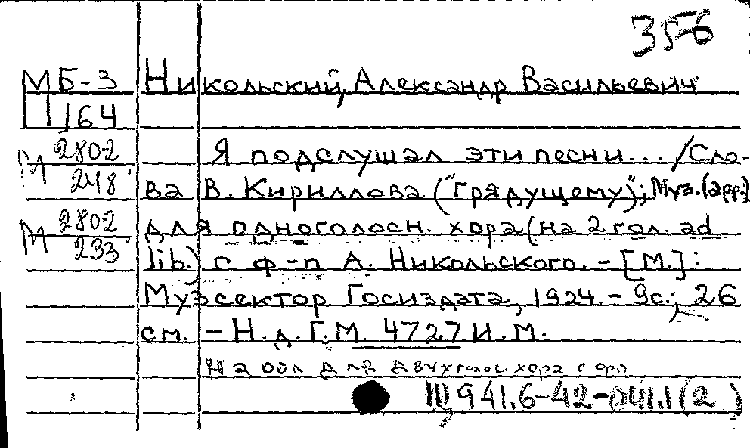 356
МБ-3 Никольский, Александр Васильевич
П/164
М 2802/248 Я подслушал эти песни... /Сло-
ва В. Кириллова ("Грядущему"); Муз. (арр.)
М 2802/233 для одноголосн. хора (на 2 гол. ad
lib.) с ф-п А. Никольского. - [М.]:
Музсектор Госиздата, 1924. - 9с.; 26
см. - Н.д. Г.М. 4727 И.М.
На обл для двухголос хора с фп
Ш941.6-42-041.1(2)